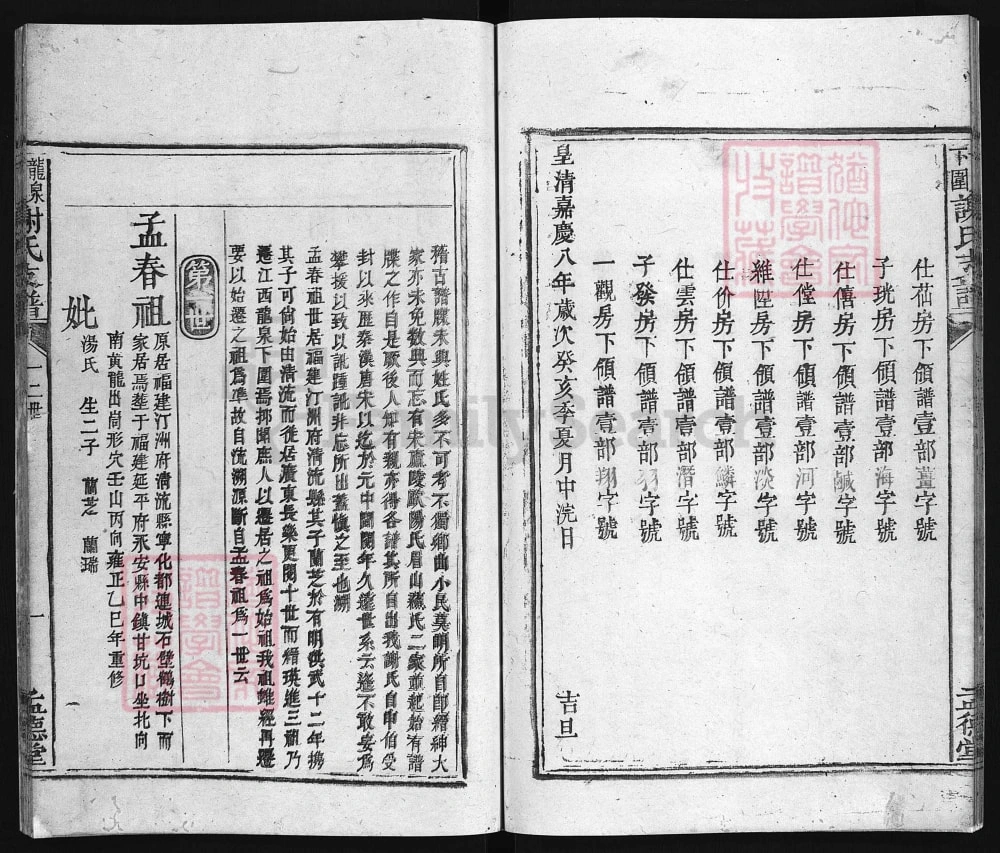 下圍謝氏支譜
孟德堂
仕茄房下領譜壹部薑字號
子珖房下領譜壹部海字號
仕僖房下領譜壹部鹹字號
仕儻房下領譜壹部河字號
維陞房下領譜壹部淡字號
仕价房下領譜壹部鱗字號
仕雲房下領譜壹部潛字號
子發房下領譜壹部羽字號
一觀房下領譜壹部翔字號
皇清嘉慶八年歲次癸亥季夏月中浣日
吉旦
稽古譜牒未興姓氏多不可考不獨鄉曲小民莫明所自即縉紳大
家亦未免數典而忘有宋廬陵歐陽氏眉山蘇氏二家並起始有譜
牒之作自是厥後人知有親亦得各譜其所自出我謝氏自申伯受
封以來歷秦漢唐宋以迄於元中間閱年久遠世系云遙不敢妄為
攀援以致以訛踵訛非忘所出蓋慎之至也溯
孟春祖世居福建汀洲府清流縣其子蘭芝於有明洪武十二年携
其子可尚始由清流而徙居廣東長樂更閱十世而縉瑛進三祖乃
遷江西龍泉下圍焉抑聞庶人以遷居之祖為始祖我祖雖經再遷
要以始遷之祖為準故自流溯源斷自孟春祖為一世云
第一世
孟春祖
原居福建汀洲府清流縣寧化都連城石壁鶴樹下而
家居焉塟于福建延平府永安縣中鎮甘坑口坐北向
南黄龍出峝形穴壬山丙向雍正乙巳年重修
妣
湯氏 生二子 蘭芝 蘭瑞
龍泉謝氏支譜
一二世
一
孟德堂
FamilySearch
譜學會